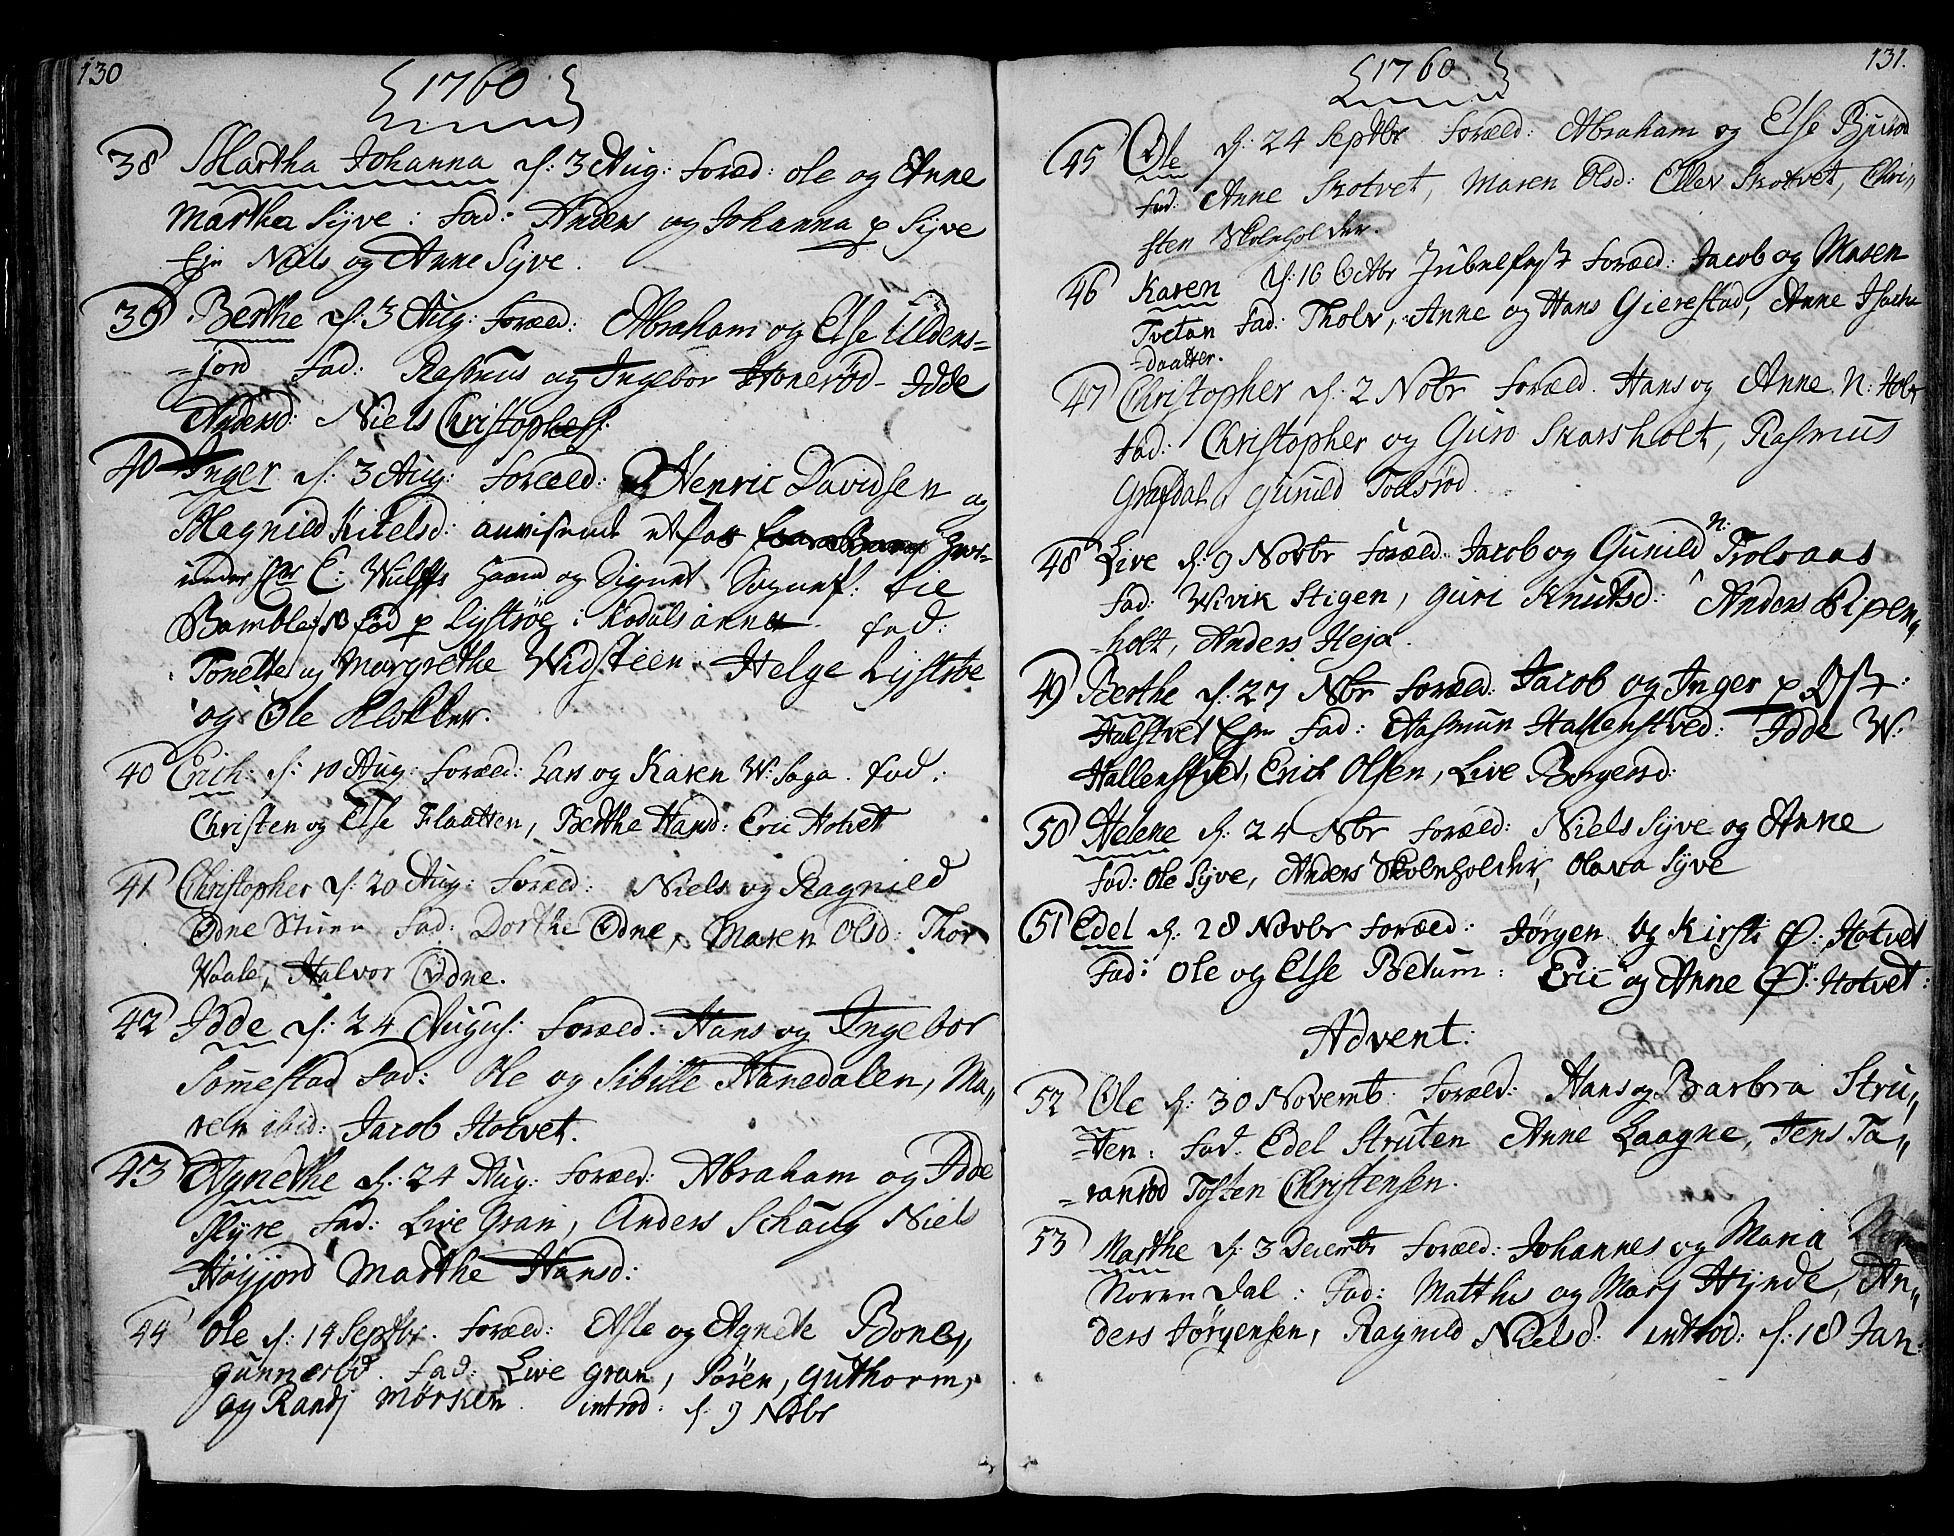 130
1760
38 Martha Johanna d: 3 Aug: foræd: ole og Anne
Martha Syve: fad: Anders og Johanna p Syve
Ejn Niels og Anne Syve.
39 Berthe d: 3 Aug: foræld: Abraham og Else Uldens=
=jord fad: Rasmus og Ingebor Honerød - Idde
Andersd: Niels Christophers:
40 Inger d: 3 Aug: foræld: Henric Davidsen og
Magnild Kitelsd: anvisende et pas
under Hr C: Wulffs Haand og Signet Sognepr: tie
Bamble, N fød p Lystrøe i Kodals annex. fad:
Tonette og Margrethe Widsteen. Helge Lystrøe
og Ole Klokker.
40 Erich d: 10 Aug: foræld: Lars og Karen W: Saga. fad:
Christen og Else Flaatten, Berthe Hansd: Eric Hotvet
41 Christopher d: 20 Aug: foræld: Niels og Ragnild
Odne Stuen fad: Dorthe Odne, Maren Olsd: Thor
Waale, Halvor Odne.
42 Idde d: 24 August: foræld: Hans og Ingebor
Somestad fad: Ole og Sibille Hanedalen, Ma„
ren ibid: Jacob Hotvet.
43 Agnethe d: 24 Aug: foræld: Abraham og Idde
Skyre fad: Live Gran, Anders Schaug Niels
Høyjord Marthe Hansd:
44 Ole d: 14 Septbr. foræld: Asle og Agnete Bone„
gunnerød. fad: Live gran, Søren, Guthorm,
og Randj Mørken. introd: d: 9 Nobr
131.
1760
45 Ole d: 24 Septbr foræld: Abraham og Else Bjuerød
fad: Anne Skotvet, Maren Olsd: Ellev Skotvet, Chri„
sten Skoleholder.
46 Karen d: 16 Octbr Jubelfæst foræld: Jacob og Maren
Tvetan fad: Tholv, Anne og Hans Gierestad, Anne Isachs
=Daatter.
47 Christopher d: 2 Nobr foræld. Hans og Anne N: Holt
fad: Christopher og Guro Skarsholt, Rasmus
Grafdal, Gunild Tolsrød.
48 Live d: 9 Novbr foræld: Jacob og Gunild N: Trolsaas
fad: Wivik Stigen, Guri Knutsd: Anders Ripen„
=holt, Anders Heja.
49 Berthe d: 27 Nbr foræld: Jacob og Inger p Øst:
Halstvet Ejn fad: Rasmun Hallenstved: Idde W:
Hallenstved, Erich Olsen, Live Borgersd:
50 Helene d: 24 Nbr foræld: Niels Syve og Anne
fad: Ole Syve, Anders Skoleholder, Olava Syve
51 Edel d: 28 Novbr foræld: Jørgen og Kirsti Ø: Hotvet
fad: Ole og Else Betum: Eric og Anne Ø: Hotvet:
Advent:
52 Ole d: 30 Novemb: foræld: Hans og Barbra Stru„
=ten: fad: Edel Struten Anne Laagne, Jens Ta„
=ranrød Tosten Christensen.
53 Marthe d: 3 Decembr foræld: Johannes og Maria
Noren Dal: fad: Matthis og Marj Hynde, An„
ders Jørgensen, Ragnild Nielsd: introd: d: 18 Jan: